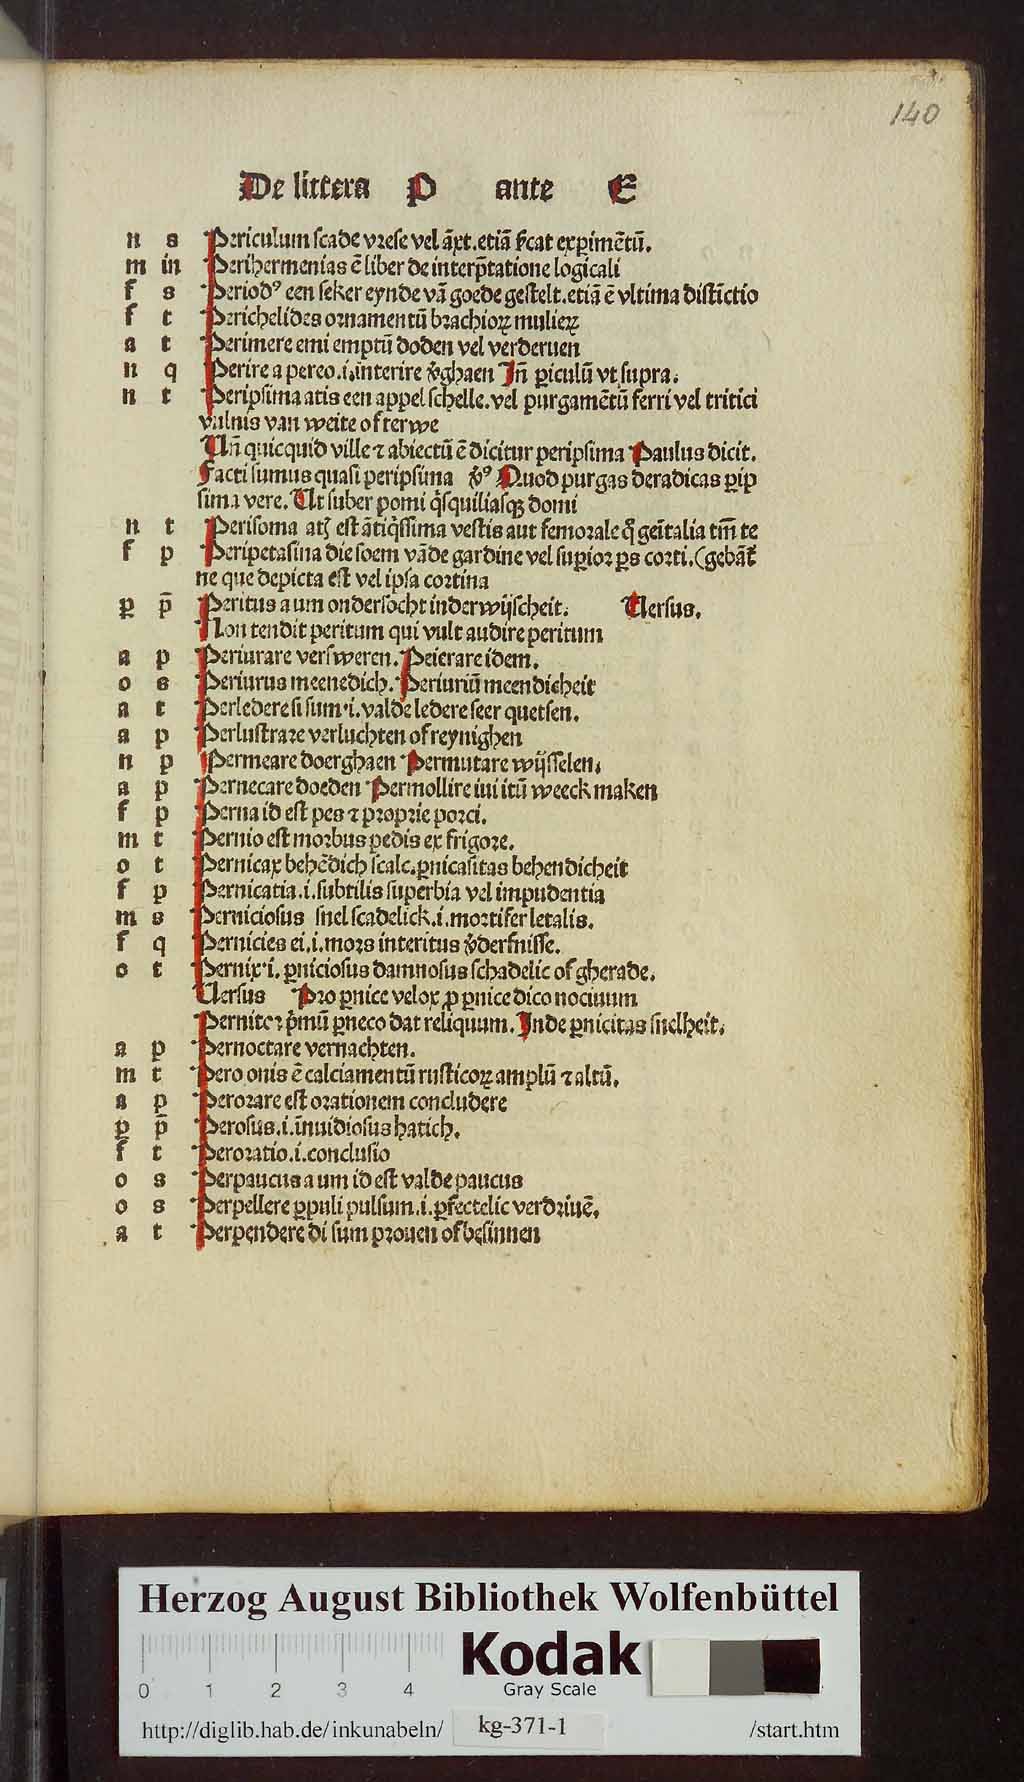 140
De littera P ante E
n s Periculum scade vrese vel āxt. etiā scat expimētū.
m in Perihermenias ē liber de interp̄tatione logicali
f s Periodꝰ een seker eynde vā goede gestelt. etiā ē vltima distīctio
f t Perichelides ornamentū brachioꝝ mulieꝝ
a t Perimere emi emptū doden vel verderuen
n q Perire a pereo .i. interire v̓ghaen Iñ ꝑiculū vt supra.
n t Peripsima atis een appel schelle. vel purgamētū ferri vel tritici
vulnis van weite of terwe
Vñ quicquid ville ⁊ abiectū ē dicitur peripsima Paulus dicit.
Facti sumus quasi peripsima v̓ꝰ Quod purgas deradicas ꝑip
sima vere. Ut suber pomi q̄squiliasqꝫ domi
n t Perisoma atꝭ est ātiq̄ssima vestis aut femorale q̄ geītalia tm̄ te
f p Peripetasina die soem vāde gardine vel suꝑior ꝑs corti. (gebāt
ne que depicta est vel ipsa cortina
ꝑ p̄ Peritus a um ondersocht inder wijscheit. Versus.
Non tendit peritum qui vult audire peritum
a p Periurare versweren. Peierare idem.
o s Periurus meenedich. Periuriū meendicheit
a t Perledere si sum .i. valde ledere seer quetsen.
a p Perlustrare verluchten of reynighen
n p Permeare doerghaen Permutare wijsselen.
a p Pernecare doeden Permollire iui itū weeck maken
f p Perna id est pes ⁊ proprie porci.
m t Pernio est morbus pedis ex frigore.
o t Pernicax behēdich scalc. ꝑnicasitas behendicheit
f p Pernicatia .i. subtilis superbia vel impudentia
m s Perniciosus snel scadelick .i. mortifer letalis.
f q Pernicies ei .i. mors interitus v̓derfnisse.
o t Pernix .i. ꝑniciosus damnosus schadelic of gherade.
Versus Pro ꝑnice velox ꝓ ꝑnice dico nociuum
Perniter p̄mū ꝑneco dat reliquum. Inde ꝑnicitas snelheit.
a p Pernoctare vernachten.
m t Pero onis ē calciamentū rusticoꝝ amplū ⁊ altū.
a p Perorare est orationem concludere
ꝑ p̄ Perosus .i. inuidiosus hatich.
f t Peroratio .i. conclusio
o s Perpaucus a um id est valde paucus
o s Perpellere ꝑpuli pulsum .i. ꝑfectelic verdriuē.
a t Perpendere di sum prouen of besinnen
Herzog August Bibliothek Wolfenbüttel
0 1 2 3 4
Kodak
Gray Scale
http://diglib.hab.de/inkunabeln/ kg-371-1 /start.htm